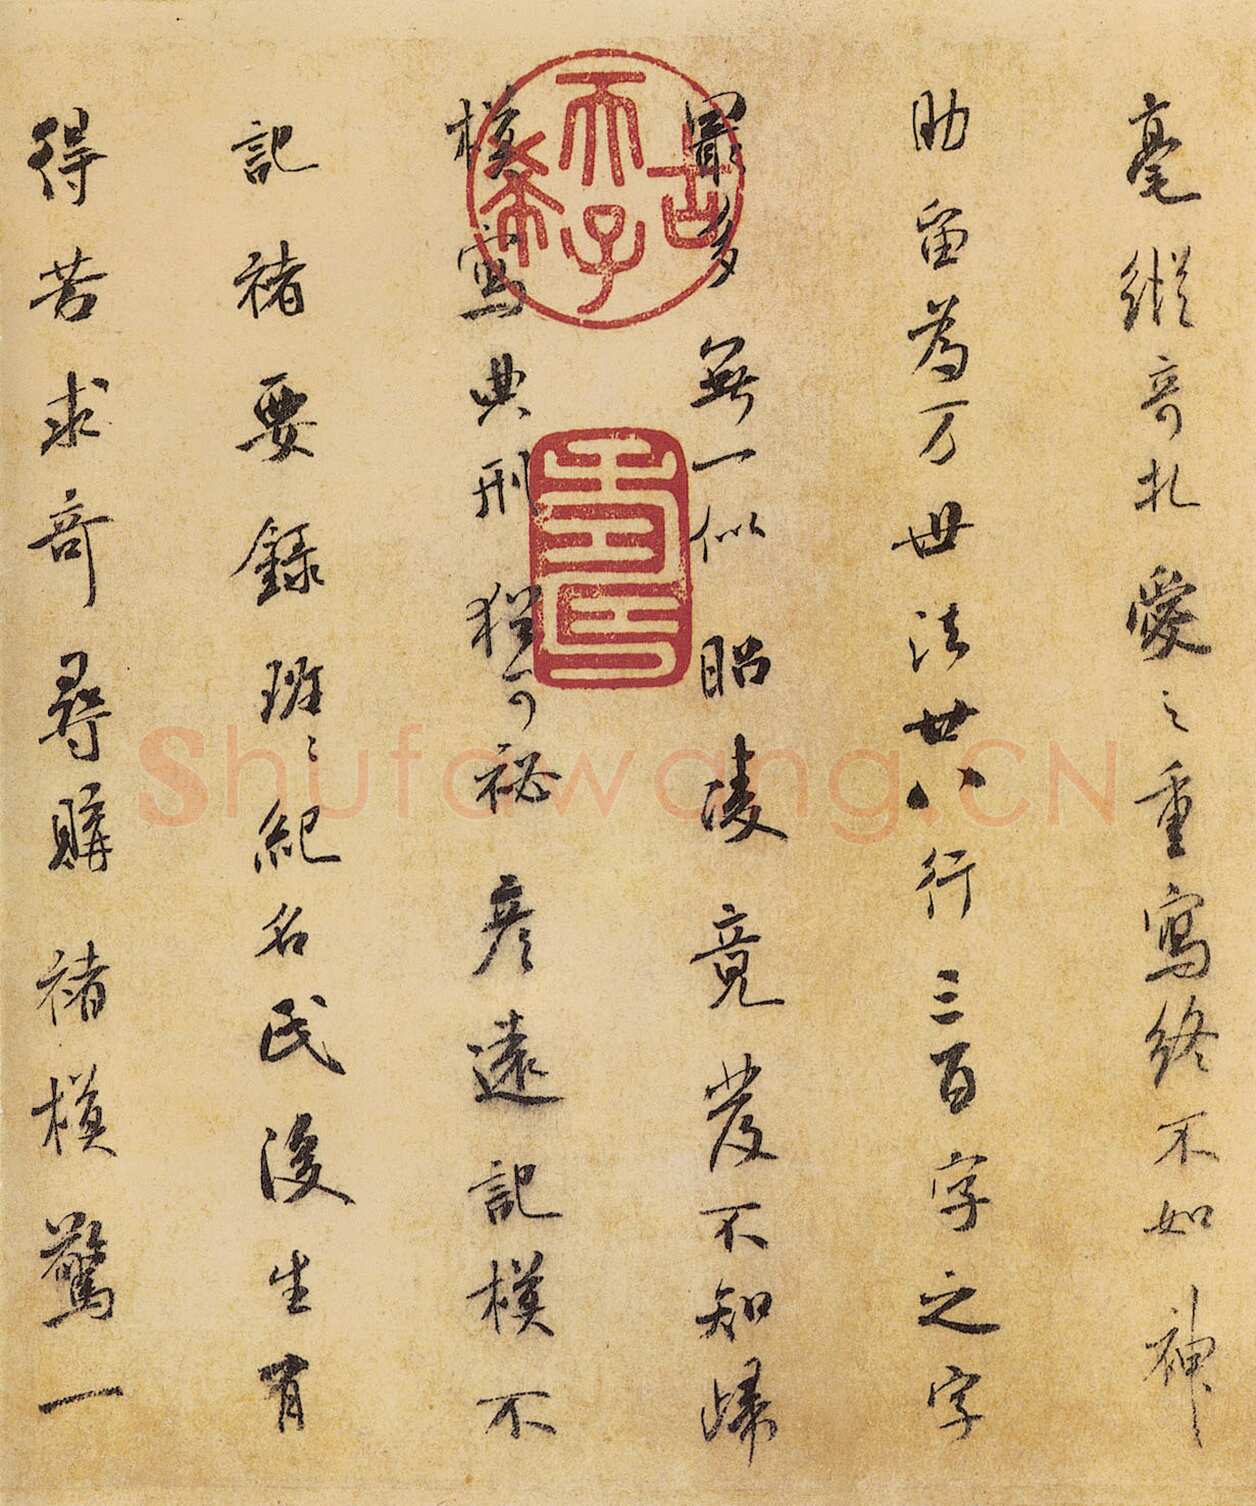 毫縱奇札愛之重寫終不如神
助留為万世法廿八行三百字之字
最多無一似昭陵竟發不知歸
模寫典刑猶可秘彥遠記模不
記褚要錄班〻紀名氏後生有
得苦求奇尋購褚模驚一
古希天子
壽
Shufawang.CN